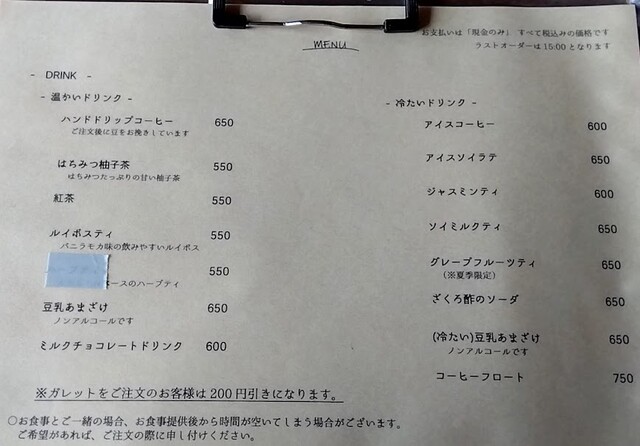 MENU
お支払いは「現金のみ」 すべて税込みの価格です
ラストオーダーは15:00となります
- DRINK -
- 温かいドリンク -
ハンドドリップコーヒー 650
ご注文後に豆をお挽きしています
はちみつ柚子茶 550
はちみつたっぷりの甘い柚子茶
紅茶 550
ルイボスティ 550
バニラモカ味の飲みやすいルイボス
550
ースのハーブティ
豆乳あまざけ 650
ノンアルコールです
ミルクチョコレートドリンク 600
- 冷たいドリンク -
アイスコーヒー 600
アイスソイラテ 650
ジャスミンティ 600
ソイミルクティ 650
グレープフルーツティ 650
(※夏季限定)
ざくろ酢のソーダ 650
(冷たい)豆乳あまざけ 650
ノンアルコールです
コーヒーフロート 750
※ガレットをご注文のお客様は200円引きになります。
○お食事とご一緒の場合、お食事提供後から時間が空いてしまう場合がございます。
ご希望があれば、ご注文の際に申し付けください。